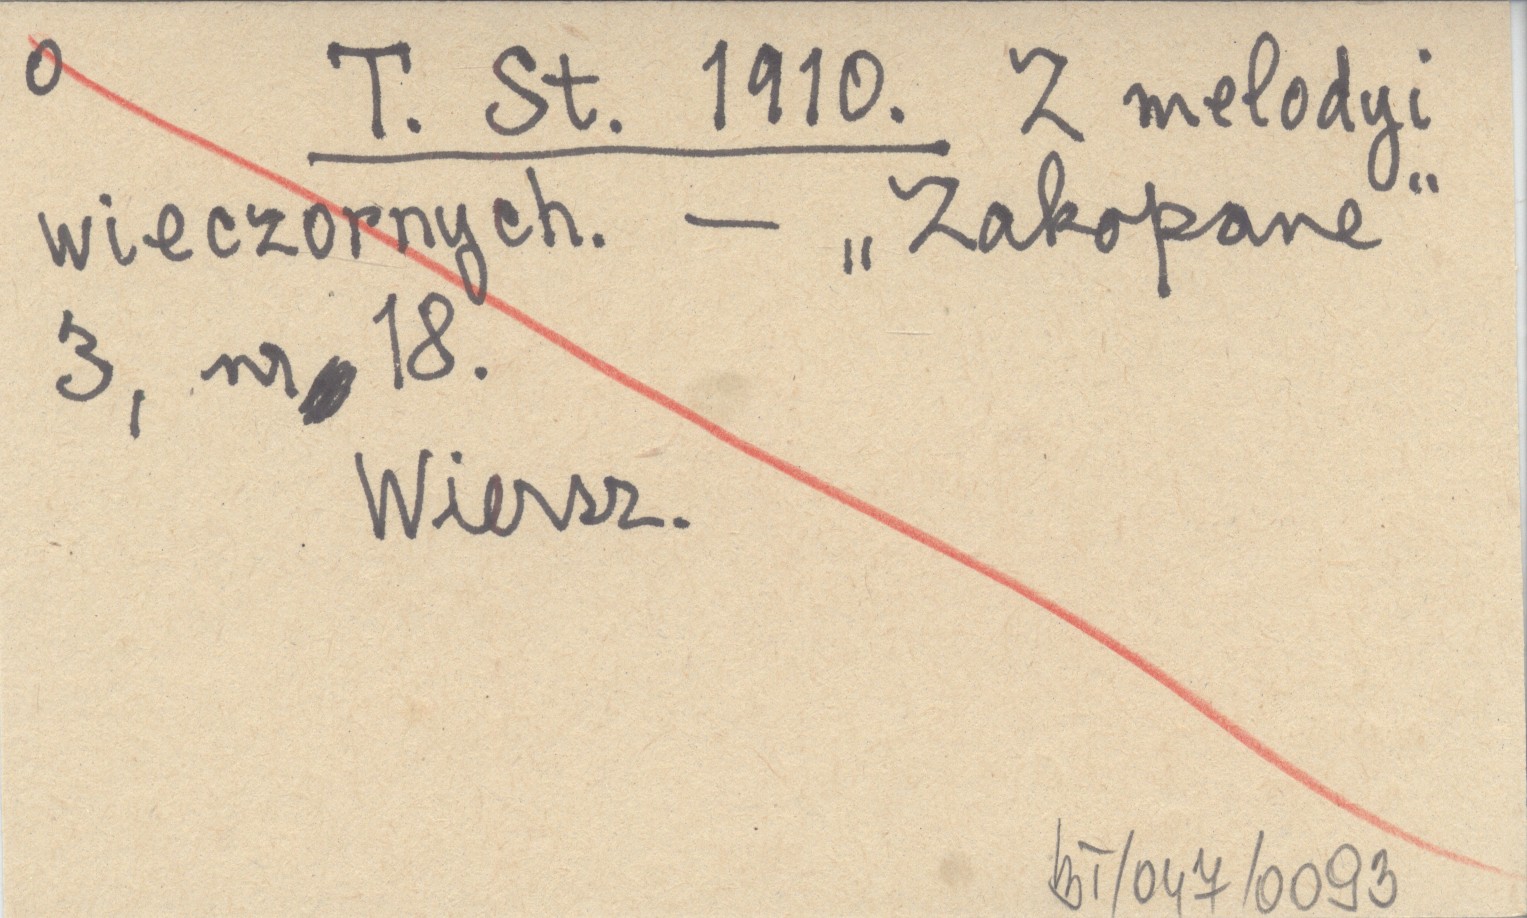 0 T. St. 1910. Z melodyi
wieczornych. — „Zakopane"
3, nr 18.
Wiersz.
BT/047/0093